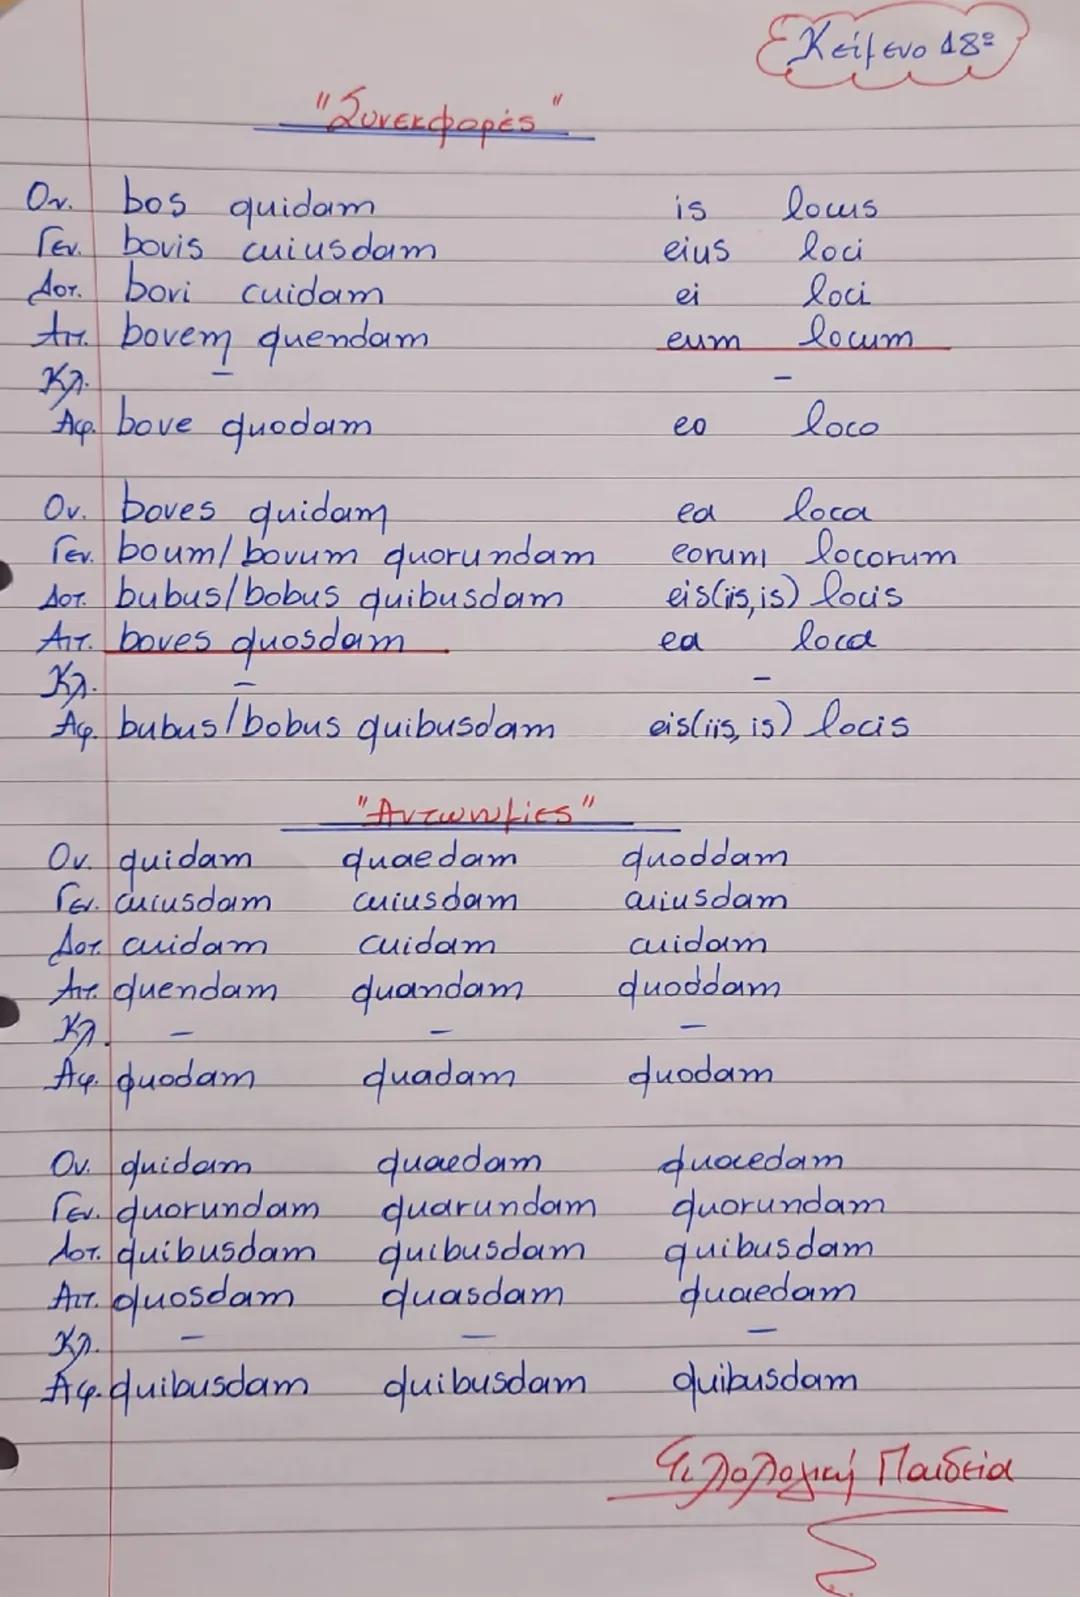 Κείμενο 18º
"Συνεκφορές"
Ον. bos quidam is locus
Γεν. bovis cuiusdam eius loci
Δοτ. bovi cuidam ei loci
Αιτ. bovem quendam eum locum
Κλ. – –
Αφ. bove quodam eo loco
Ον. boves quidam ea loca
Γεν. boum/bovum quorundam eorum locorum
Δοτ. bubus/bobus quibusdam eis(iis, is) locis
Αιτ. boves quosdam ea loca
Κλ. – –
Αφ. bubus/bobus quibusdam eis(iis, is) locis
"Αντωνυμίες"
Ον. quidam quaedam quoddam
Γεν. cuiusdam cuiusdam cuiusdam
Δοτ. cuidam cuidam cuidam
Αιτ. quendam quandam quoddam
Κλ. – – –
Αφ. quodam quadam quodam
Ον. quidam quaedam quaedam
Γεν. quorundam quarundam quorundam
Δοτ. quibusdam quibusdam quibusdam
Αιτ. quosdam quasdam quaedam
Κλ. – – –
Αφ. quibusdam quibusdam quibusdam
Φιλολογική Παιδεία